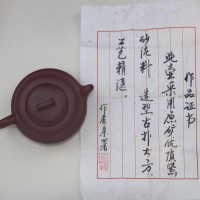 作品证书
此壶采用原矿优质紫
砂泥料 造型古朴大方
工艺精湛
作者亲署